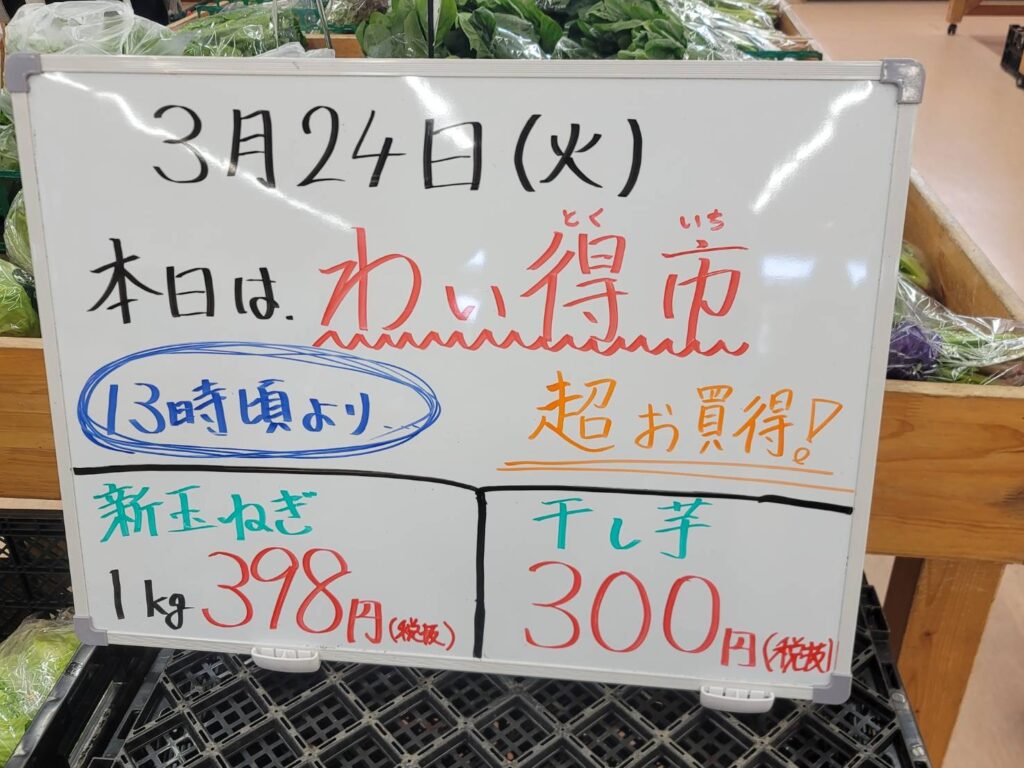 3月24日(火)
とく いち
本日は.わぃ得市
13時頃より.
超お買得!
新玉ねぎ
1kg 398円(税抜)
干し芋
300円(税抜)